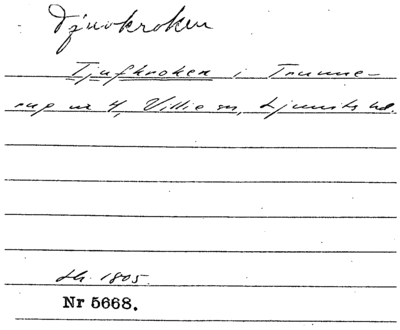 Djuvkroken
Tjufkroken i Trunne-
rup nr 4, Villie sn, Ljunits hd.
sk. 1805.
Nr 5668.